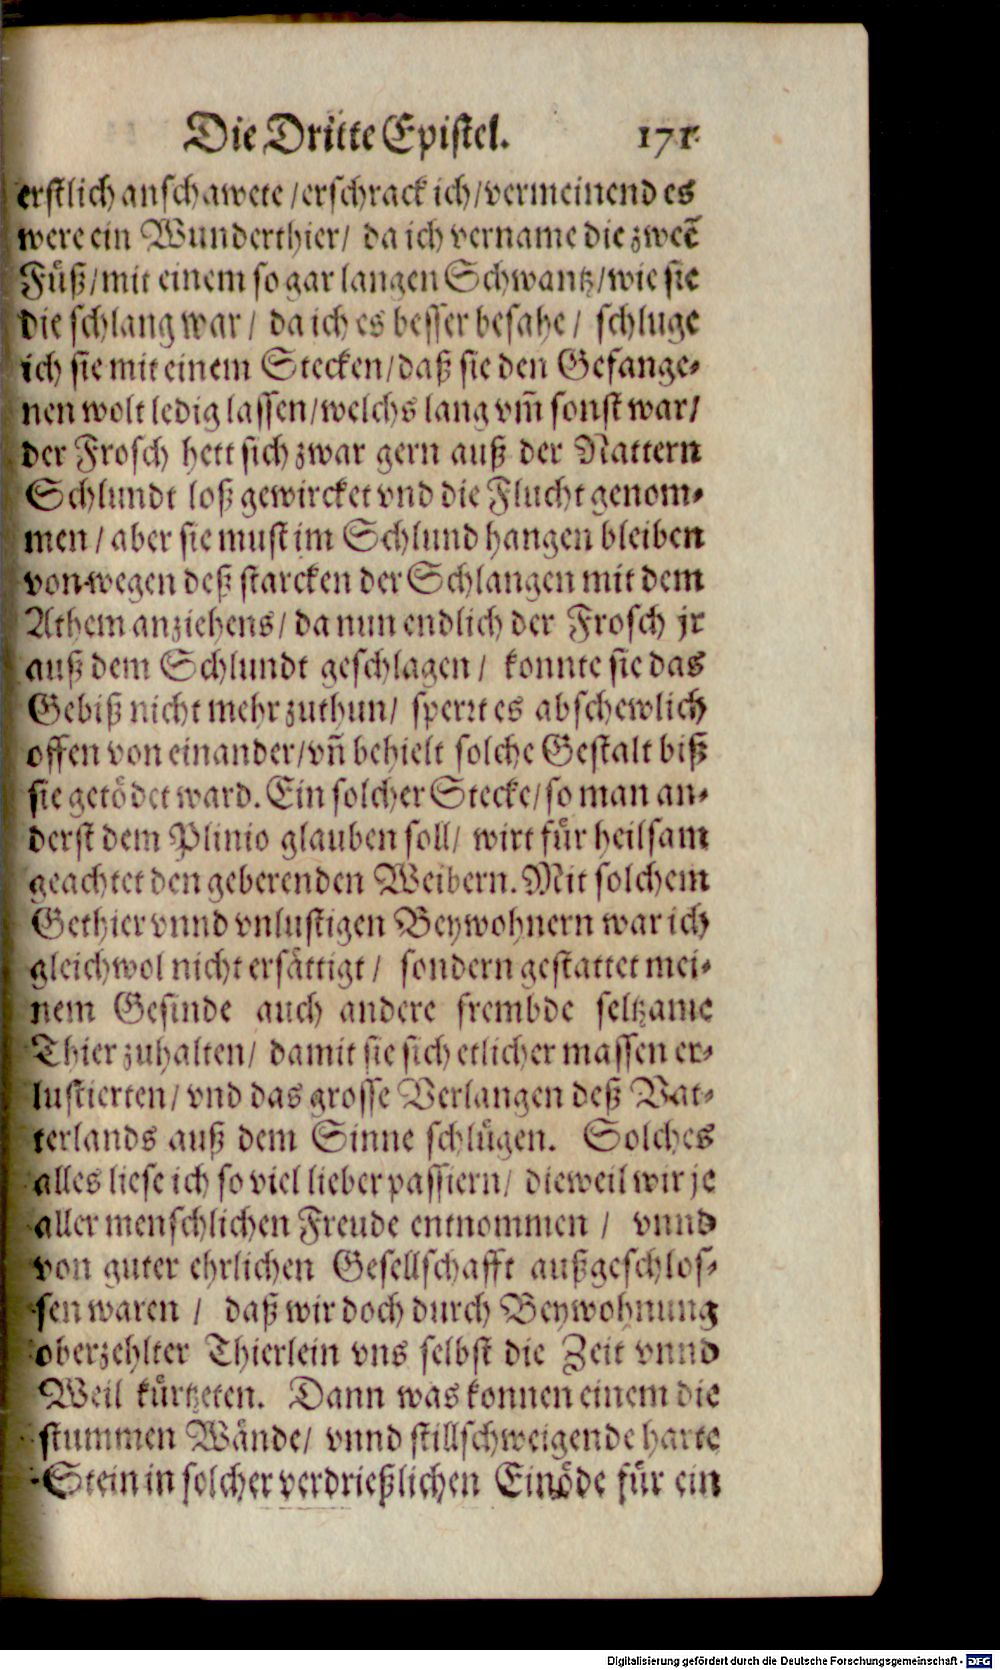 Die Dritte Epistel. 171
erstlich anschawete / erschrack ich / vermeinend es
were ein Wunderthier / da ich vername die zweẽ
Füß / mit einem so gar langen Schwantz / wie sie
die schlang war / da ich es besser besahe / schluge
ich sie mit einem Stecken / daß sie den Gefange-
nen wolt ledig lassen / welchs lang vm̃ sonst war /
der Frosch hett sich zwar gern auß der Nattern
Schlundt loß gewircket vnd die Flucht genom-
men / aber sie must im Schlund hangen bleiben
von wegen deß starcken der Schlangen mit dem
Athem anziehens / da nun endlich der Frosch jr
auß dem Schlundt geschlagen / konnte sie das
Gebiß nicht mehr zuthun / sperrt es abschewlich
offen von einander / vñ behielt solche Gestalt biß
sie getödet ward. Ein solcher Stecke / so man an-
derst dem Plinio glauben soll / wirt für heilsam
geachtet den geberenden Weibern. Mit solchem
Gethier vnnd vnlustigen Beywohnern war ich
gleichwol nicht ersättigt / sondern gestattet mei-
nem Gesinde auch andere frembde seltzame
Thier zuhalten / damit sie sich etlicher massen er-
lustierten / vnd das grosse Verlangen deß Vat-
terlands auß dem Sinne schlügen. Solches
alles liese ich so viel lieber passiern / dieweil wir je
aller menschlichen Freude entnommen / vnnd
von guter ehrlichen Gesellschafft außgeschlos-
sen waren / daß wir doch durch Beywohnung
oberzehlter Thierlein vns selbst die Zeit vnnd
Weil kürtzeten. Dann was konnen einem die
stummen Wände / vnnd stillschweigende harte
Stein in solcher verdrießlichen Einöde für ein
Digitalisierung gefördert durch die Deutsche Forschungsgemeinschaft - DFG